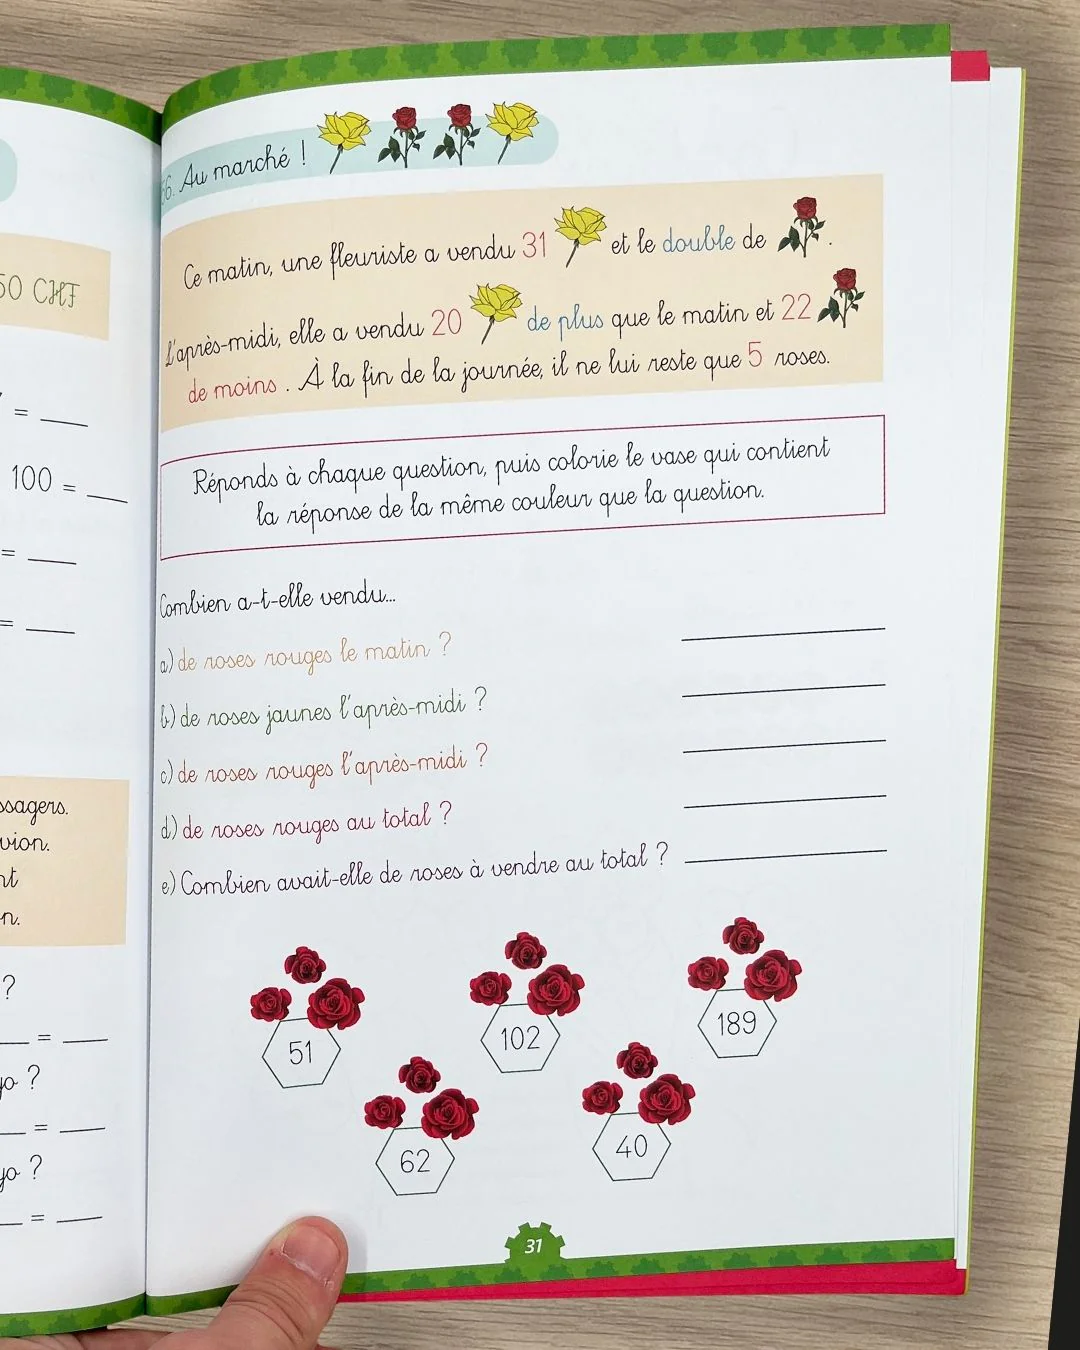 50 CHF
= ____
100 = ____
= ____
= ____
ssagers.
vion.
nt
n.
?
____ = ____
yo ?
____ = ____
yo ?
____ = ____
66. Au marché !
Ce matin, une fleuriste a vendu 31 et le double de .
L'après-midi, elle a vendu 20 de plus que le matin et 22
de moins . À la fin de la journée, il ne lui reste que 5 roses.
Réponds à chaque question, puis colorie le vase qui contient
la réponse de la même couleur que la question.
Combien a-t-elle vendu...
a) de roses rouges le matin ?
b) de roses jaunes l'après-midi ?
c) de roses rouges l'après-midi ?
d) de roses rouges au total ?
e) Combien avait-elle de roses à vendre au total ?
51
102
189
62
40
31